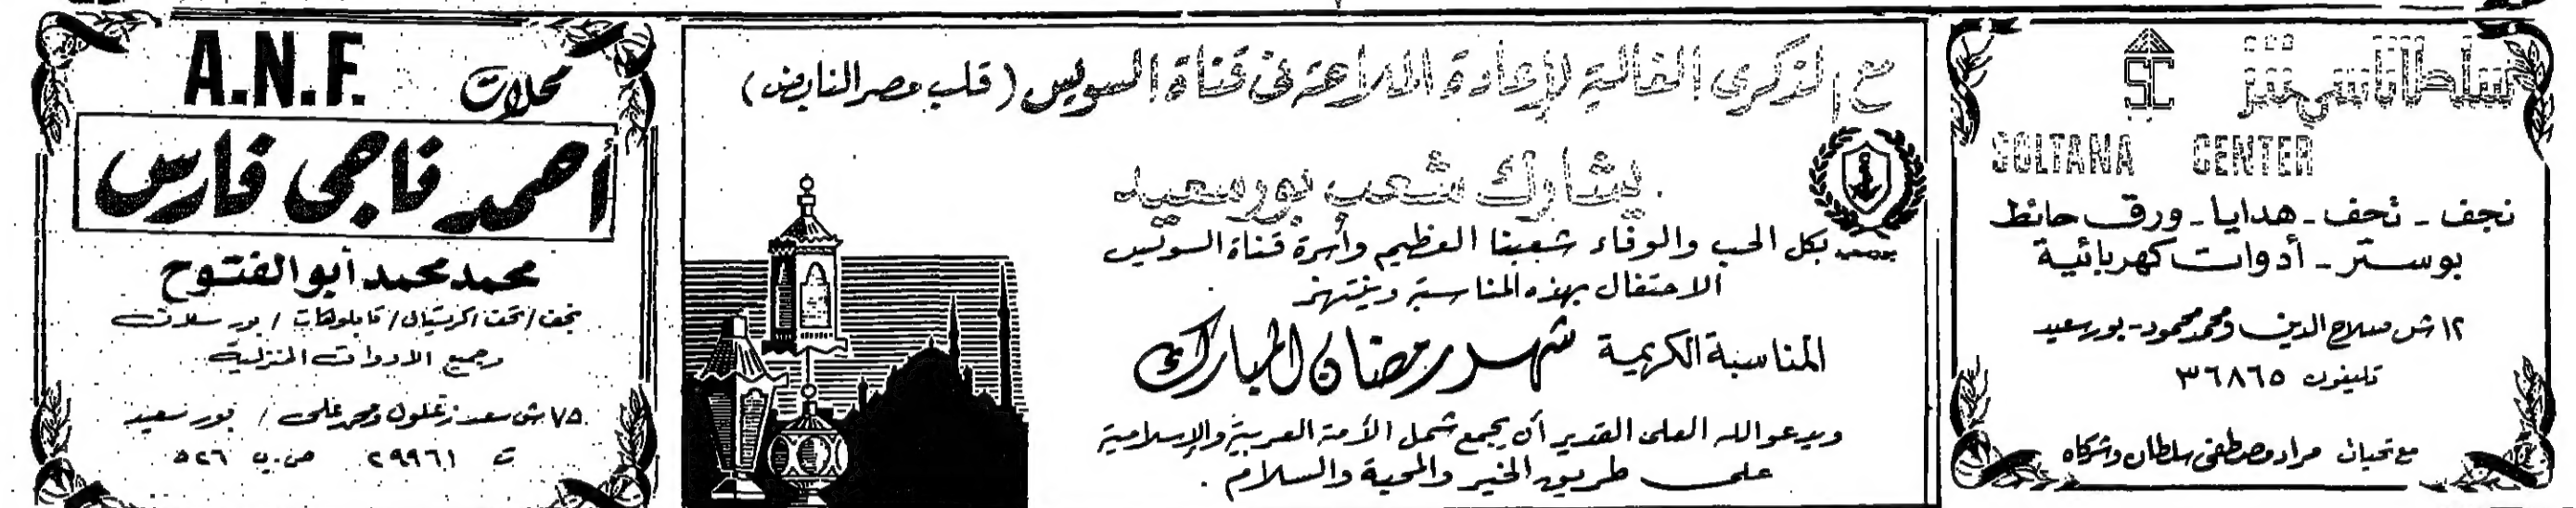 سلطانا سي نتر
SC
SOLTANA CENTER
نجف - تحف - هدايا - ورق حائط
بوستر - أدوات كهربائية
١٢ ش صلاح الدين ومحمد محمود - بورسعيد
تليفون ٣٦٨٦٥
مع تحيات مراد مصطفى سلطان وشركاه
مع الذكرى الغالية لإعادة الملاحة فى قناة السويس (قلب مصر النابض)
يشارك شعب بورسعيد
بكل الحب والوفاء شعبنا العظيم وأسرة قناة السويس
الاحتفال بهذه المناسبة وينتهز
المناسبة الكريمة شهر رمضان المبارك
ويدعو الله العلى القدير أن يجمع شمل الأمة العربية والإسلامية
على طريق الخير والمحبة والسلام .
محلات A.N.F.
أحمد ناجى فارس
محمد محمد أبو الفتوح
نجف / تحف / كريستال / تابلوهات / بورسلان
وجميع الادوات المنزلية
٧٥ ش سعد زغلول ومحمد على / بورسعيد
ت ٢٩٩٦١ ص.ب ٥٢٦